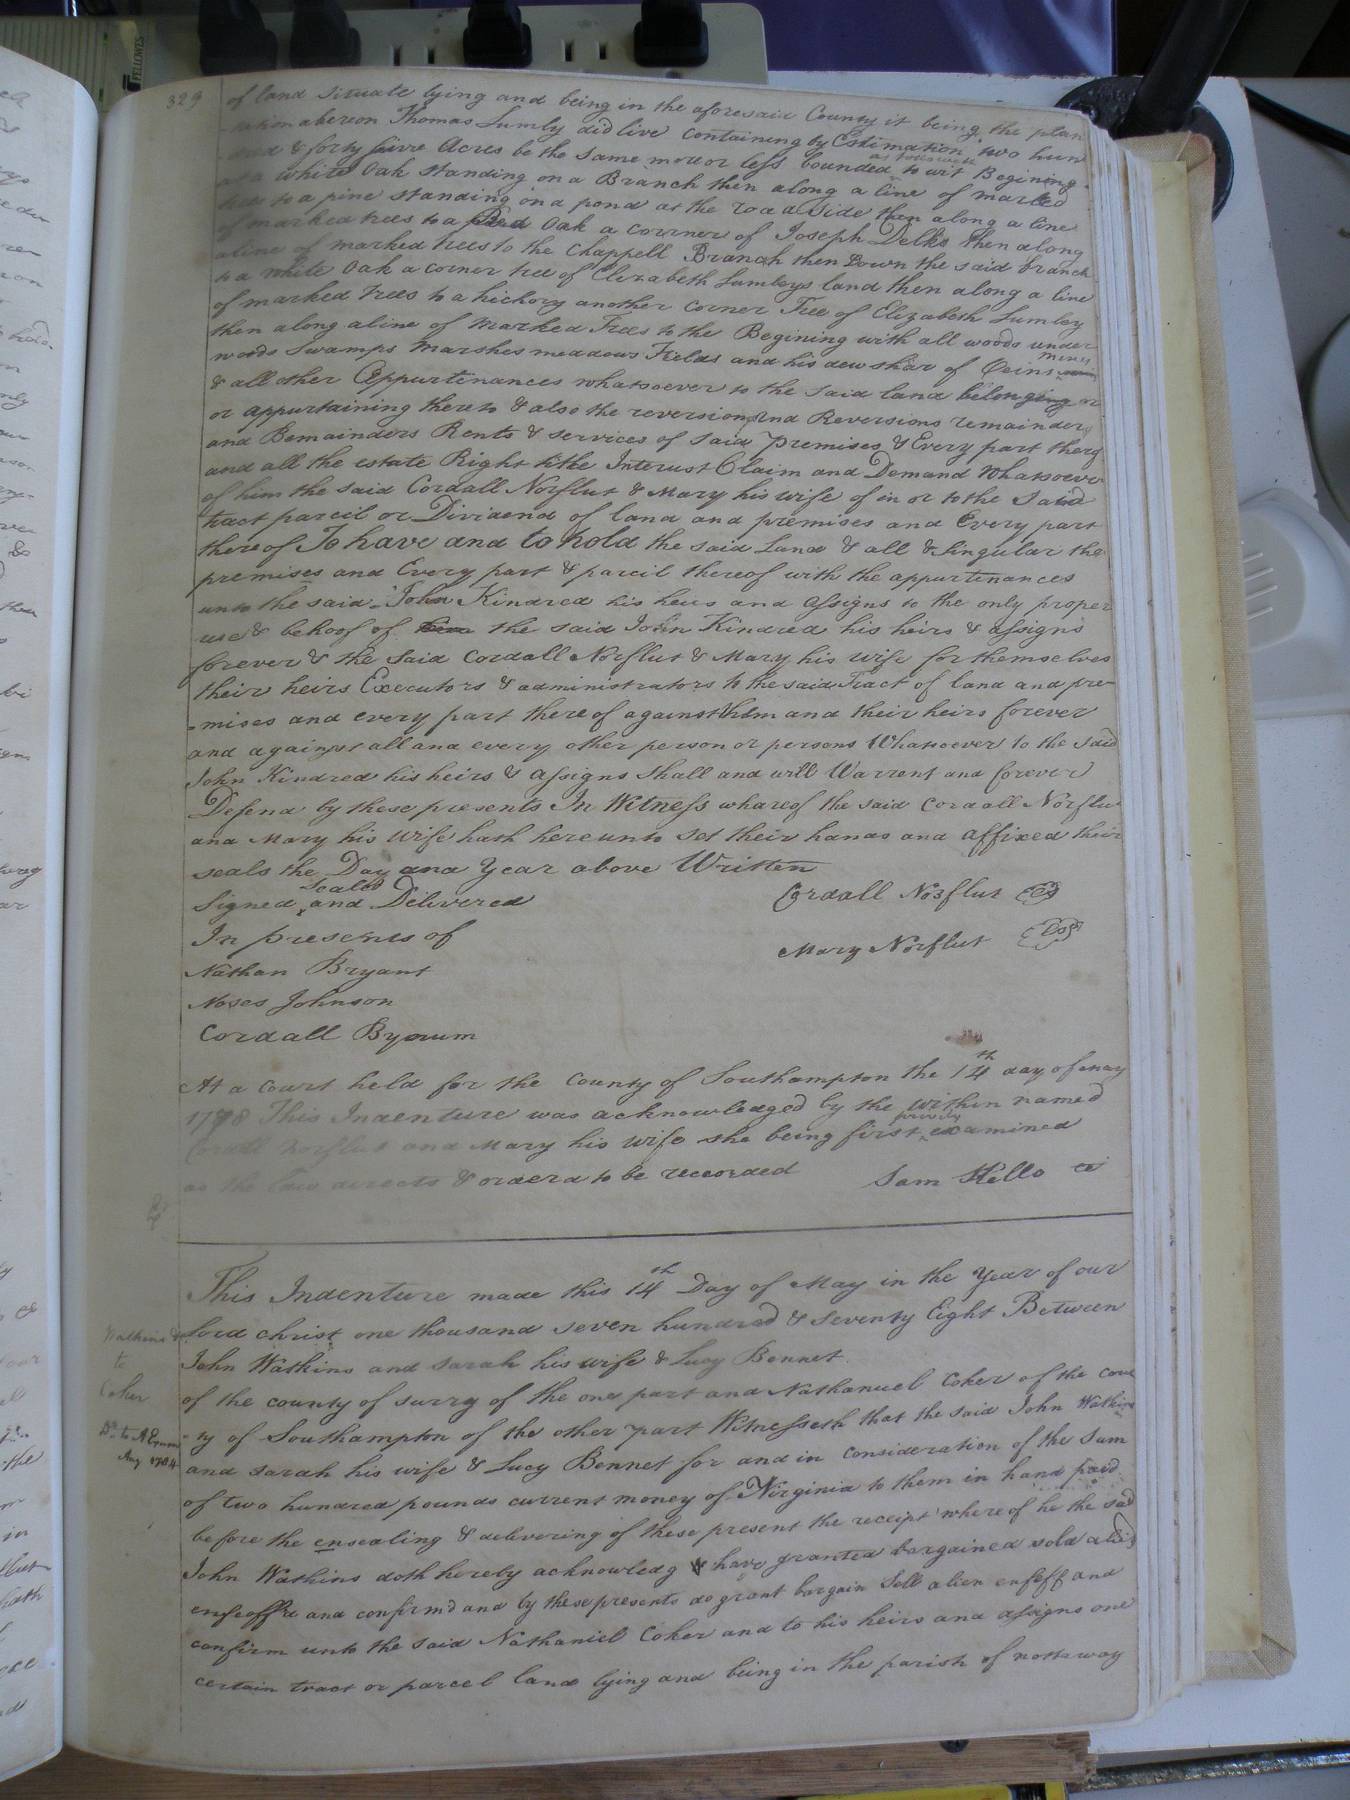 329
of land situate lying and being in the aforesaid County it being the plan
-tation whereon Thomas Lumly did live containing by Estimation two hun
-dred & forty five Acres be the same more or less bounded as followeth to wit Begining
at a White Oak standing on a Branch then along a line of marked
trees to a pine standing on a pond at the road side then along a line
of marked trees to a Red Oak a corner of Joseph Delks then along
a line of marked trees to the Chappell Branch then Down the said branch
to a White Oak a corner tree of Elizabeth Lumbeys land then along a line
of marked trees to a hickory another Corner Tree of Elizabeth Lumbey
then along a line of Marked Trees to the Begining with all woods under
woods Swamps Marshes meadows Fields and his dew shar of Veins mines
& all other Appurtinances whatsoever to the said land belonging or
or appurtaining thereto & also the reversion and Reversions remainder
and Remainders Rents & services of said premises & Every part therof
and all the estate Right title Interust Claim and Demand Whatsoever
of him the said Cordall Norflut & Mary his wife of in or to the Said
tract parcil or Dividend of land and premises and Every part
there of To have and to hold the said Land & all & Singular the
premises and Every part & parcil thereof with the appurtinances
unto the said John Kindred his heirs and assigns to the only proper
use & behoof of the said John Kindred his heirs & assigns
forever & the Said Cordall Norflut & Mary his wife for themselves
their heirs Executors & administrators to the said Tract of land and pre-
-mises and every part there of against them and their heirs forever
and against all and every other person or persons Whatsoever to the said
John Kindred his heirs & assigns Shall and will Warrent and forever
Defend by these presents In Witness whareof the said Cordall Norflut
and Mary his Wife hath hereunto set their hands and affixed their
seals the Day and Year above Written
Signed Sealed and Delivered Cordall Norflut
In presents of
Mary Norflut
Nathan Bryant
Moses Johnson
Cordall Bynum
At a Court held for the County of Southampton the 14th day of may
1778 This Indenture was acknowledged by the within named
Cordll Norflut and Mary his wife she being first privily examined
as the law directs & orderd to be reccorded Sam Kello
This Indenture made this 14th Day of May in the Year of our
Watkins &
lord christ one thousand seven hundred & seventy Eight Between
to
John Watkins and Sarah his wife & Lucy Bennet
Coker
of the county of surry of the one part and Nathanuel Coker of the coun
-ty of Southampton of the other part Witnesseth that the said John Watkins
Aug 1784
and Sarah his wife & Lucy Bennet for and in consideration of the Sum
of two hundred pounds current money of Virginia to them in hand paid
before the ensealing & delivering of these present the receipt where of he the said
John Watkins doth hereby acknowledg have granted bargained sold alid
enfeoff'd and confirm'd and by these presents do grant bargain Sell alien enfeff and
confirm unto the said Nathaniel Coker and to his heirs and assigns one
certain tract or parcel land lying and being in the parish of nottoway